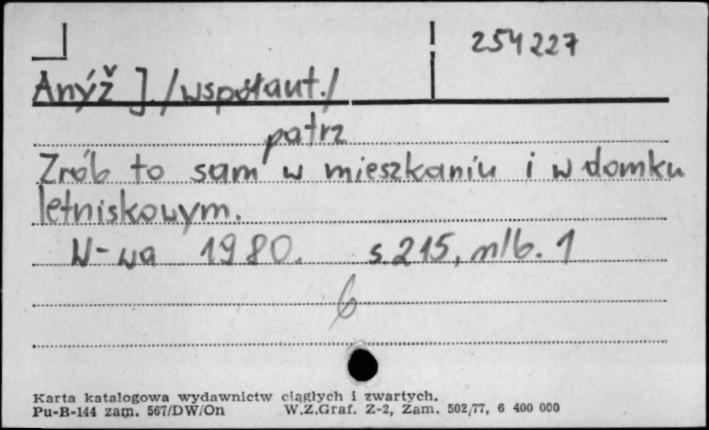 254227
Anýž J. /współaut./
patrz
Zrób to sam w mieszkaniu i w domku
letniskowym.
W-wa 1980. s. 215, nlb. 1
6
Karta katalogowa wydawnictw ciągłych i zwartych.
Pu-B-144 zam. 567/DW/On W.Z.Graf. Z-2, Zam. 502/77, 6 400 000